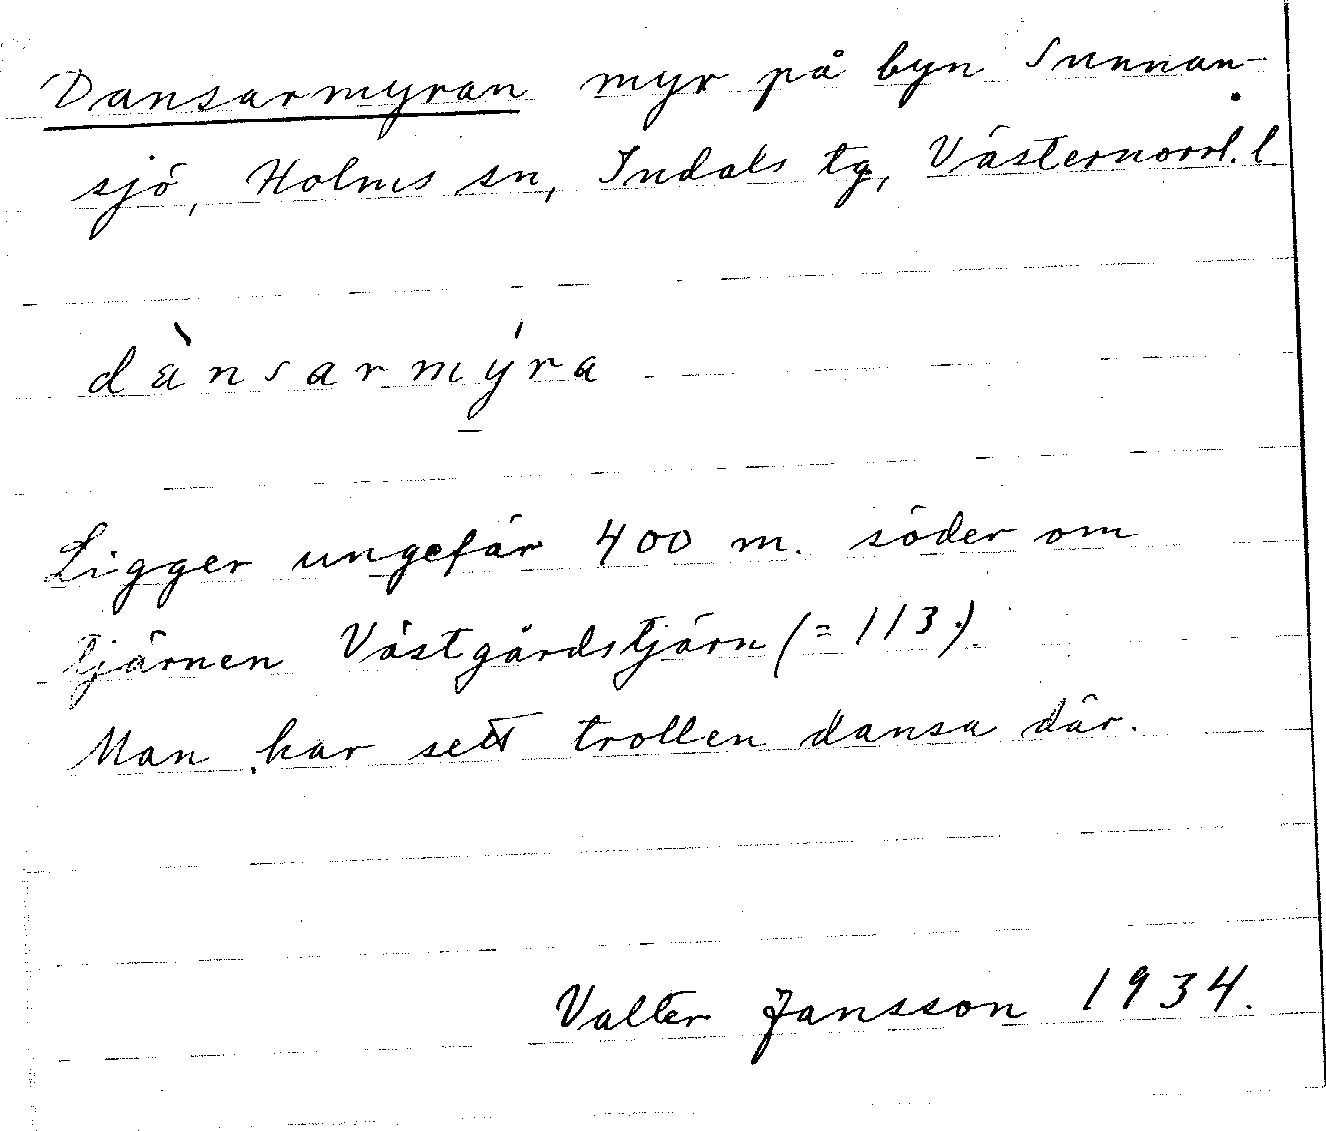 Dansarmyran myr på byn Sunnan-
sjö, Holms sn, Indals tg, Västernorrl. l.
dànsarmýra
Ligger ungefär 400 m. söder om
tjärnen Västgårdstjärn (= 113.)
Man har sett trollen dansa där.
Valter Jansson 1934.